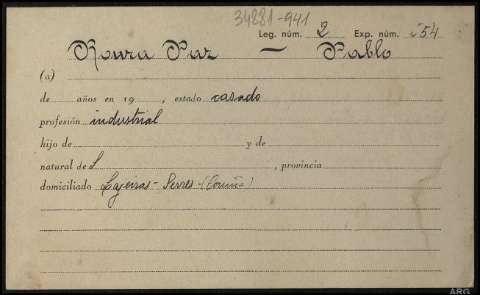 34881-941
Leg. núm. 2 Exp. núm. 54
Roura Paz — Pablo
(a)
de años en 19 , estado casado
profesión industrial
hijo de y de
natural de L , provincia
domiciliado Lajeiras - Serres - (Coruña)
ARG